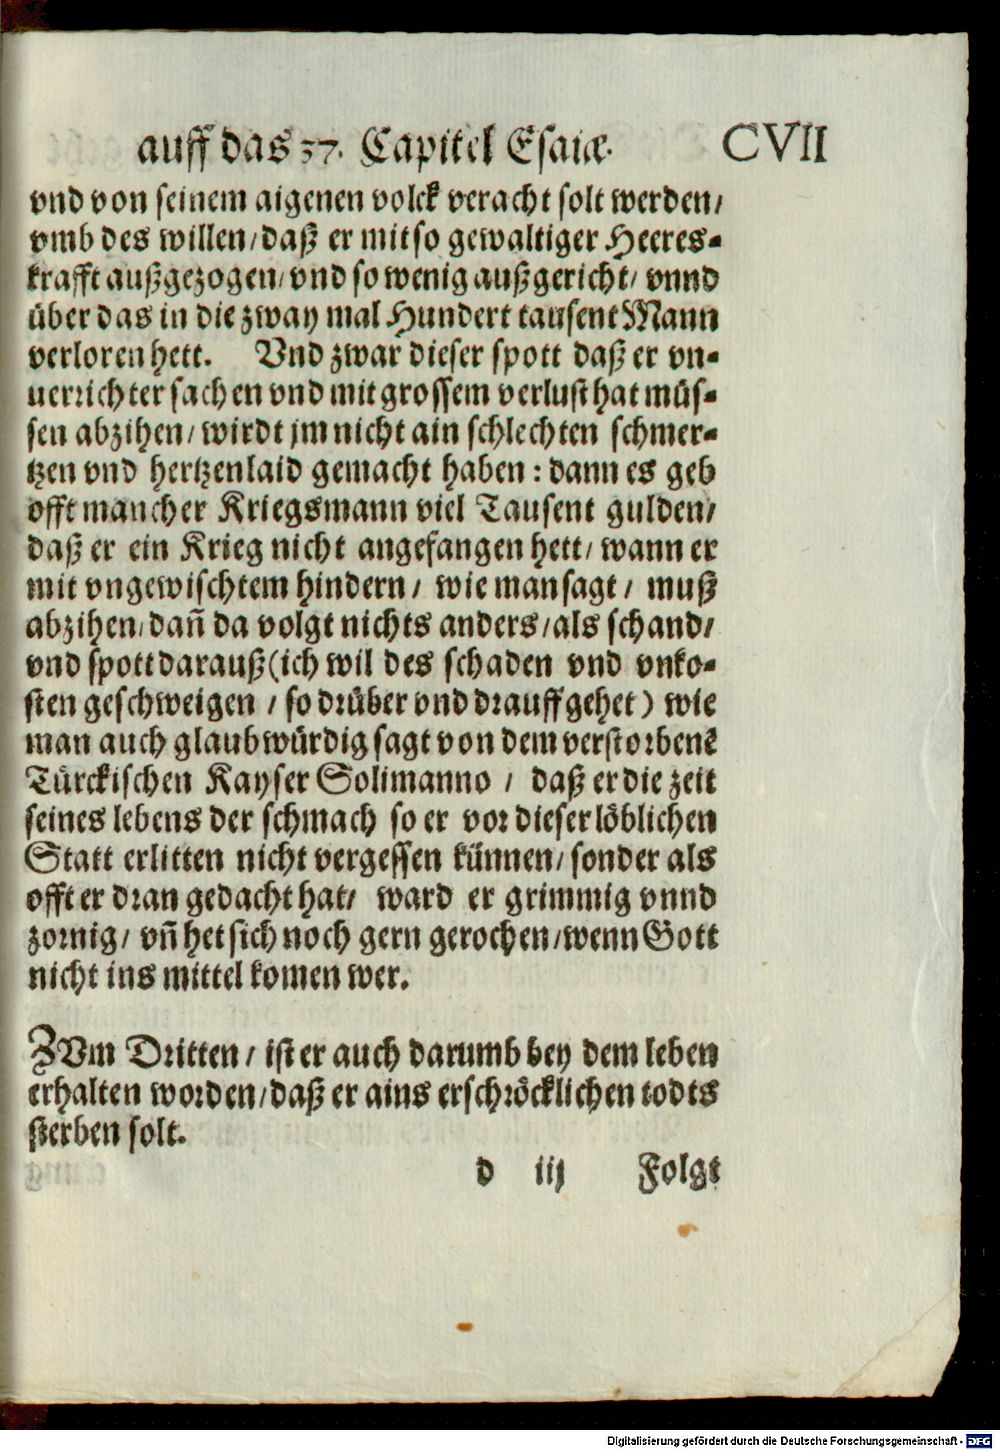 auff das 37. Capitel Esaiæ. CVII
vnd von seinem aigenen volck veracht solt werden/
vmb des willen/daß er mit so gewaltiger Heeres-
krafft außgezogen/ vnd so wenig außgericht/ vnnd
über das in die zway mal Hundert tausent Mann
verloren hett. Vnd zwar dieser spott daß er vn-
uerrichter sachen vnd mit grossem verlust hat müs-
sen abzihen/ wirdt jm nicht ain schlechten schmer-
tzen vnd hertzenlaid gemacht haben: dann es geb
offt mancher Kriegsmann viel Tausent gulden/
daß er ein Krieg nicht angefangen hett/ wann er
mit vngewischtem hindern/ wie man sagt/ muß
abzihen/dañ da volgt nichts anders/als schand/
vnd spott darauß(ich wil des schaden vnd vnko-
sten geschweigen / so drüber vnd drauff gehet) wie
man auch glaubwürdig sagt von dem verstorbenē
Türckischen Kayser Solimanno / daß er die zeit
seines lebens der schmach so er vor dieser löblichen
Statt erlitten nicht vergessen künnen/ sonder als
offt er dran gedacht hat/ ward er grimmig vnnd
zornig/ vñ het sich noch gern gerochen/wenn Gott
nicht ins mittel komen wer.
ZVm Dritten/ ist er auch darumb bey dem leben
erhalten worden/daß er ains erschröcklichen todts
sterben solt.
d iij Folgt
Digitalisierung gefördert durch die Deutsche Forschungsgemeinschaft - DFG